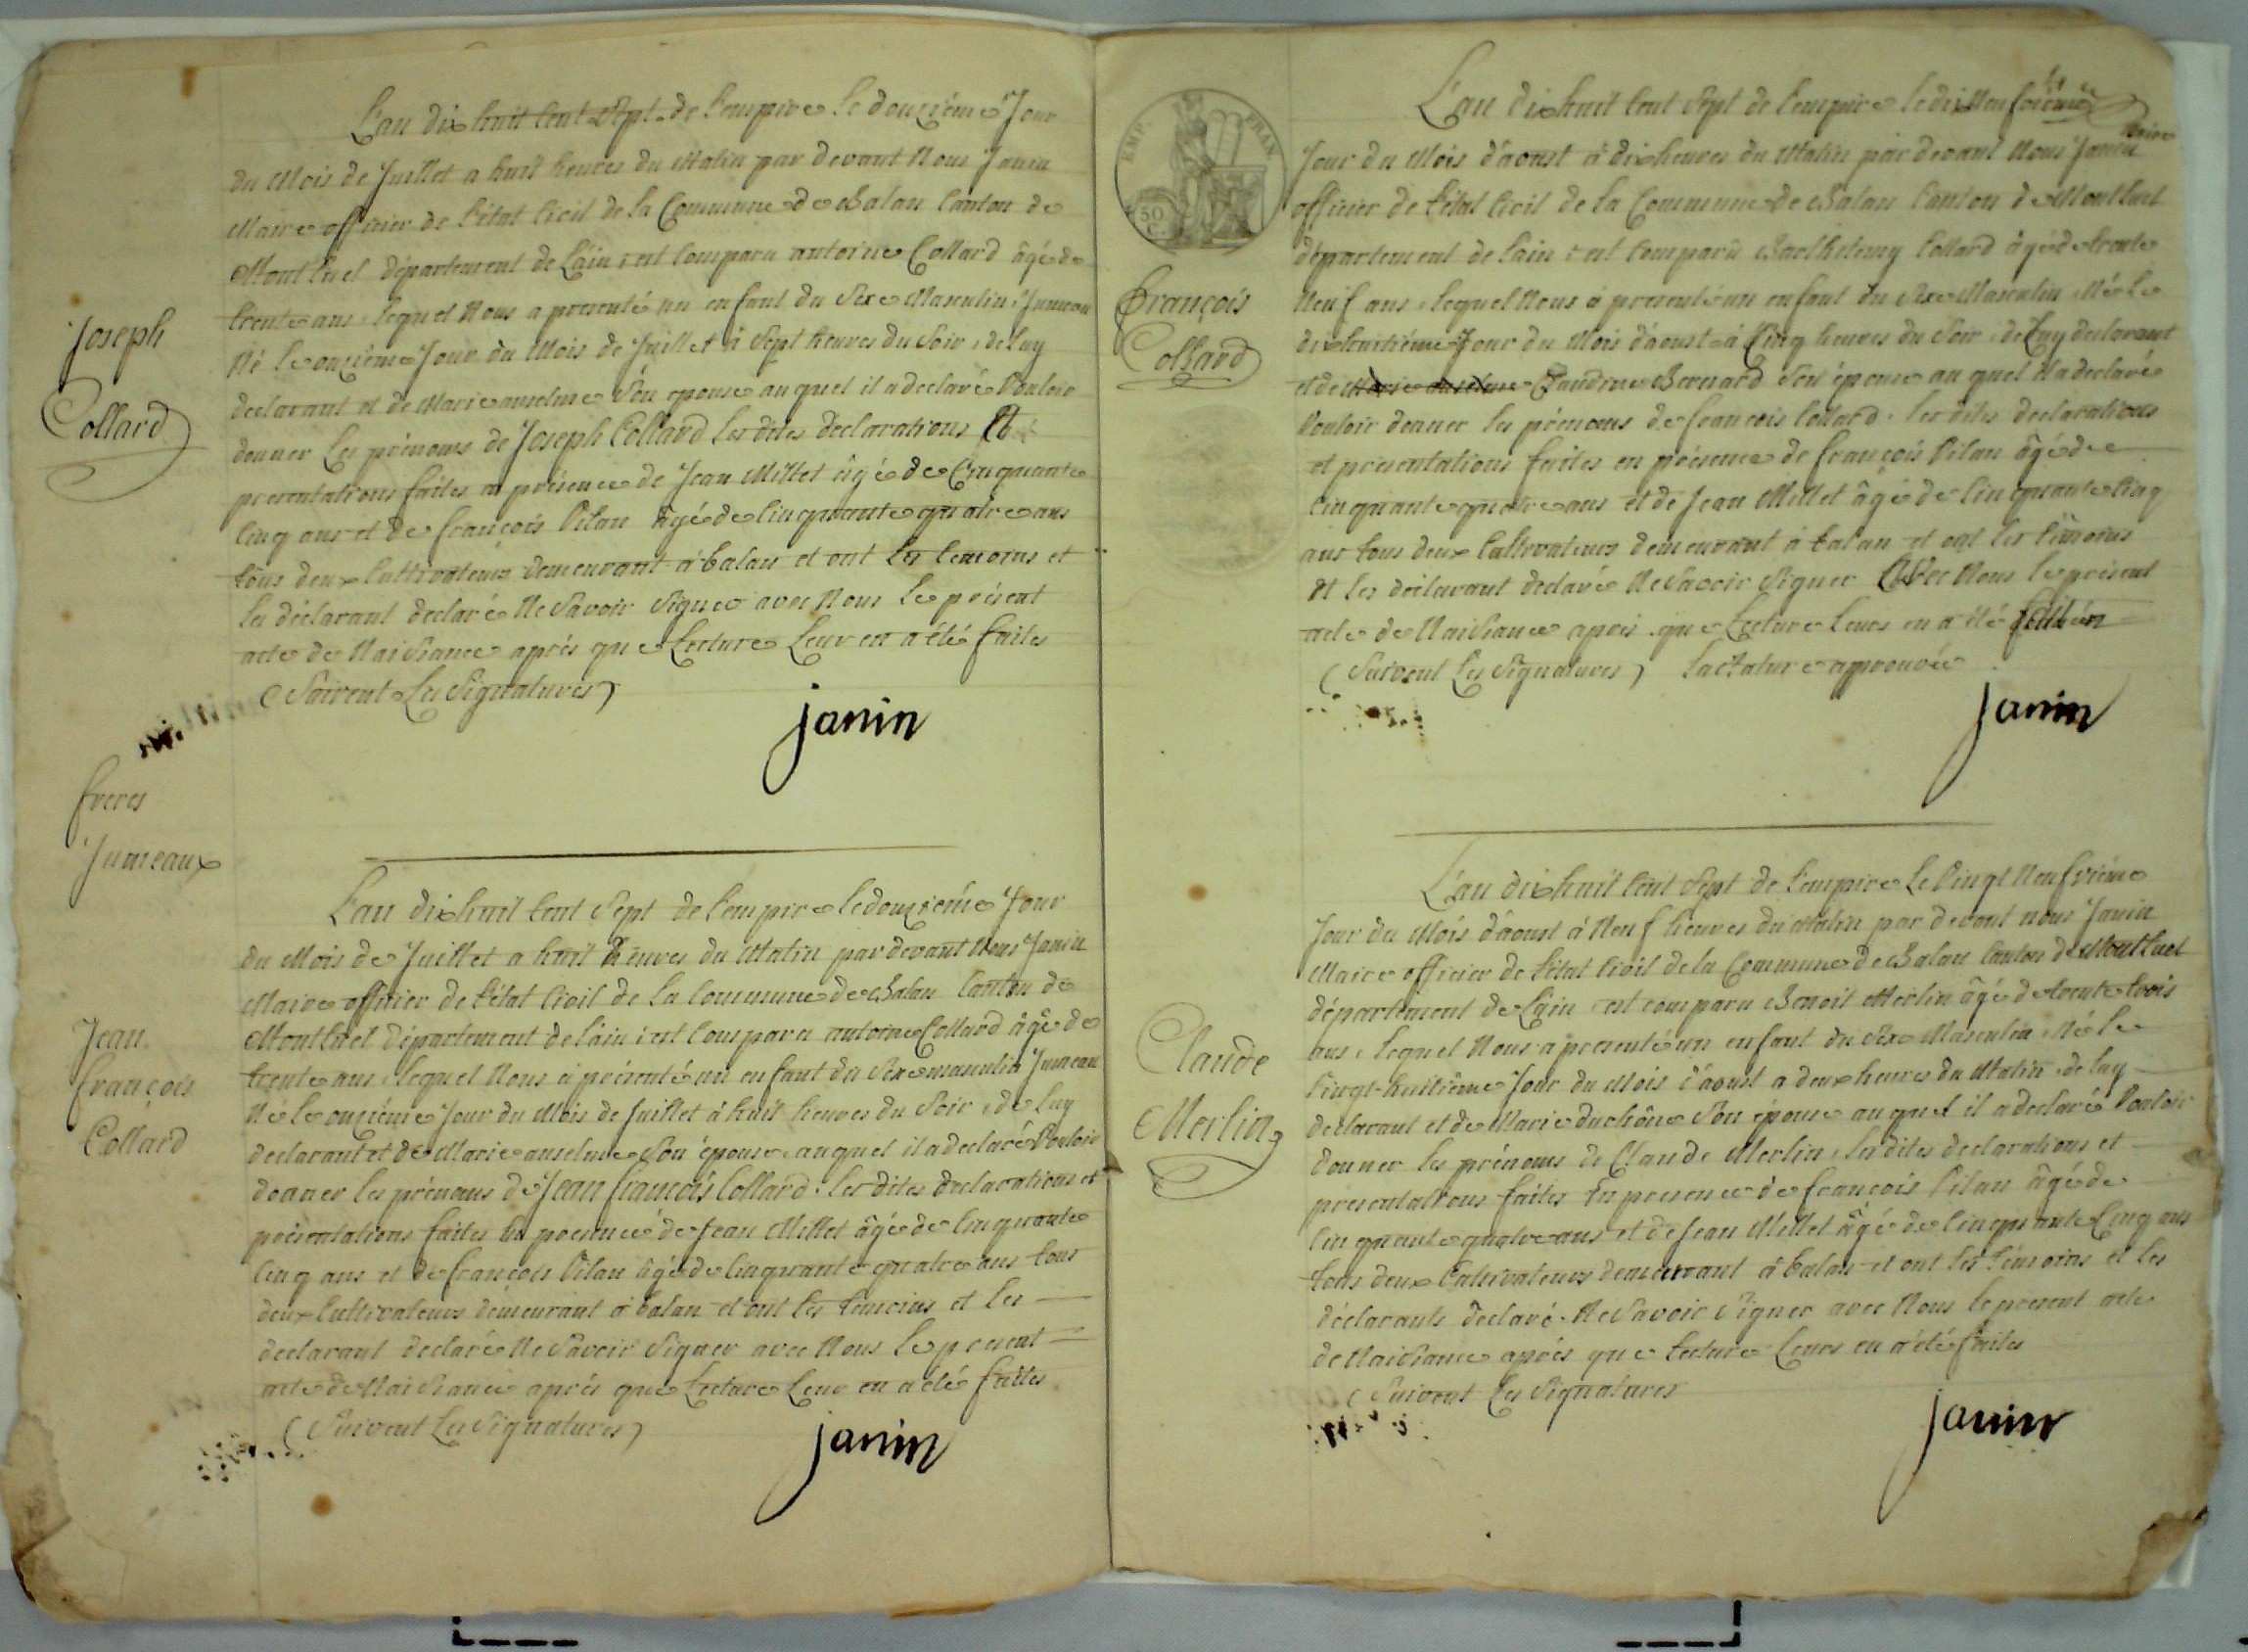 Joseph
Collard
L'an dix huit cent sept de l'empire le douzième Jour
du Mois de Juillet a huit heures du Matin par devant Nous Janin
Maire officier de l'état Civil de la Commune de Balan Canton de
Montluel département de L'ain, est Comparu antoine Collard âgé de
trente ans, lequel Nous a presenté un enfant du Sexe Masculin, Jumeau
Né le onzième Jour du Mois de Juillet à Sept heures du Soir, de Luy
declarant et de Marie anselme Son epouse auquel il a declaré Vouloir
donner les prénoms de Joseph Collard les dites declarations et
presentations faites en présence de Jean Millet âgé de Cinquante
Cinq ans et de françois Pilan âgé de Cinquante quatre ans
tous deux Cultivateurs demeurant à balan et ont les temoins et
les déclarant declaré Ne Savoir Signer avec Nous le présent
acte de Naissance après que Lecture Leur en a été faites
(Suivent Les Signatures)
janin
freres
Jumeaux
Jean
françois
Collard
L'an dix huit cent Sept de l'empire le douzième Jour
du Mois de Juillet a huit heures du Matin par devant Nous Janin
Maire officier de l'état Civil de la Commune de Balan Canton de
Montluel Département de l'ain, est Comparu antoine Collard âgé de
trente ans, lequel Nous à présenté un enfant du Sexe masculin Jumeau
Né le onzième Jour du Mois de Juillet à huit heures du Soir, de luy
declarant et de Marie anselme Son épouse, auquel il a declaré Vouloir
donner les prénoms de Jean françois Collard. les dites declarations et
présentations faites en présence de Jean Millet âgé de Cinquante
Cinq ans et de françois Pilan âgé de Cinquante quatre ans tous
deux Cultivateurs demeurant à balan et ont les temoins et les
declarant declaré Ne Savoir Signer avec Nous le present
acte de Naissance après que Lecture Leur en a été faites
(Suivent Les Signatures)
janin
EMP. FRAN.
50
C.
François
Collard
L'an dix huit cent Sept de l'empire le dix Neufvième
Jour du Mois d'aoust à dix heures du Matin par devant Nous Janin Maire
officier de l'état Civil de la Commune de Balan Canton de Montluel
département de l'ain est Comparû Barthelemy Collard âgé de trente
Neuf ans, lequel Nous à presenté un enfant du Sexe Masculin, Né Le
dix huitième Jour du Mois d'aoust à Cinq heures du Soir, de Luy declarant
et de Marie anselme Claudine Bernard Son épouse auquel Il a declaré
Vouloir donner les prénoms de françois Collard. les dites declarations
et présentations faites en présence de françois Pilan âgé de
Cinquante quatre ans et de Jean Millet âgé de Cinquante Cinq
ans tous deux Cultivateurs demeurant à balan et ont les témoins
et les déclarant declaré Ne Savoir Signer Avec Nous le présent
acte de Naissance après que Lecture Leurs en a été
(Suivent Les Signatures) approuvée
janin
Claude
Merlin
L'an dix huit cent Sept de l'empire Le Vingt Neufvième
Jour du Mois d'aoust à Neuf heures du Matin par devant nous Janin
Maire officier de l'état Civil de la Commune de Balan Canton de Montluel
département de L'ain est comparu Benoit Merlin âgé de trente trois
ans, lequel Nous a presenté un enfant du Sexe Masculin, Né le
Vingt-huitième Jour du Mois d'aoust a deux heures du Matin, de luy
declarant et de Marie duchêne Son épouse auquel il a declaré Vouloir
donner les prénoms de Claude Merlin, les dites declarations et
presentations faites En presence de françois Pilan âgé de
Cinquante quatre ans et de Jean Millet âgé de Cinquante Cinq ans
tous deux Cultivateurs demeurant à balan et ont les témoins et les
déclarants declaré. Ne Savoir Signer avec Nous le present acte
de Naissance après que Lecture Leurs en a été faites
(Suivent Les Signatures
janin